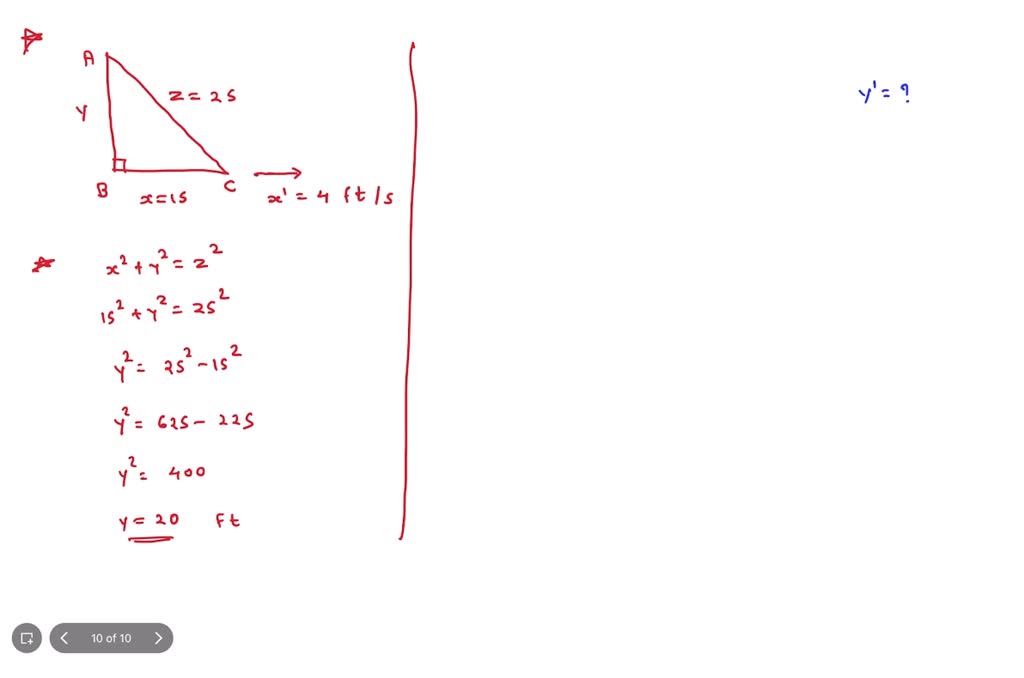 A
z = 25
y
B
C
x = 15
x' = 4 ft/s
x² + y² = z²
15² + y² = 25²
y² = 25² - 15²
y² = 625 - 225
y² = 400
y = 20 Ft
y' = ?
10 of 10